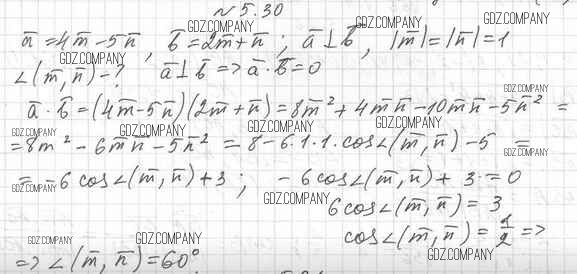 № 5.30
GDZ.COMPANY GDZ.COMPANY GDZ.COMPANY
ā = 4m̄ - 5n̄, b̄ = 2m̄ + n̄; ā ⊥ b̄, |m̄| = |n̄| = 1
GDZ.COMPANY GDZ.COMPANY
∠(m̄, n̄) - ? ā ⊥ b̄ => ā · b̄ = 0
GDZ.COMPANY
ā · b̄ = (4m̄ - 5n̄)(2m̄ + n̄) = 8m̄² + 4m̄n̄ - 10m̄n̄ - 5n̄² =
GDZ.COMPANY GDZ.COMPANY GDZ.COMPANY
= 8m̄² - 6m̄n̄ - 5n̄² = 8 - 6·1·1·cos∠(m̄, n̄) - 5 =
GDZ.COMPANY
= -6 cos∠(m̄, n̄) + 3; -6 cos∠(m̄, n̄) + 3 = 0
GDZ.COMPANY GDZ.COMPANY
6 cos∠(m̄, n̄) = 3
cos∠(m̄, n̄) = 1/2 =>
GDZ.COMPANY GDZ.COMPANY GDZ.COMPANY
=> ∠(m̄, n̄) = 60°